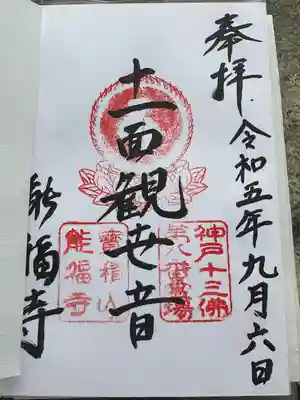 奉拝
令和五年九月六日
十一面観世音
能福寺
神戸十三佛
第八番霊場
寳積山
能福寺